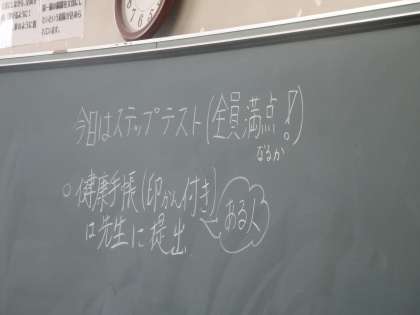 今日はステップテスト(全員満点!)
なるか
○健康手帳(印かん付き)
ある人
口先生に提出